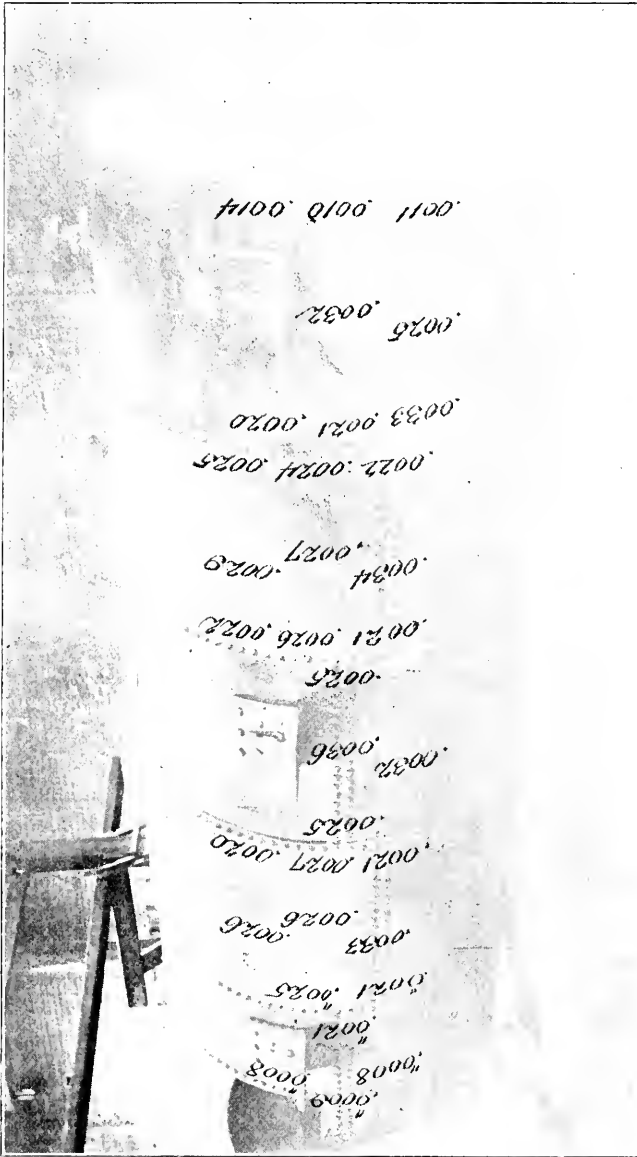 .0009"
.0008" .0008"
.0021"
.0021" .0025"
.0033 .0026 .0026
.0021 .0027 .0020
.0025
.0032 .0036
.0025
.0021 .0026 .0022
.0034 .0027 .0029
.0022 .0024 .0025
.0033 .0021 .0020
.0032
.0011 .0010 .0014